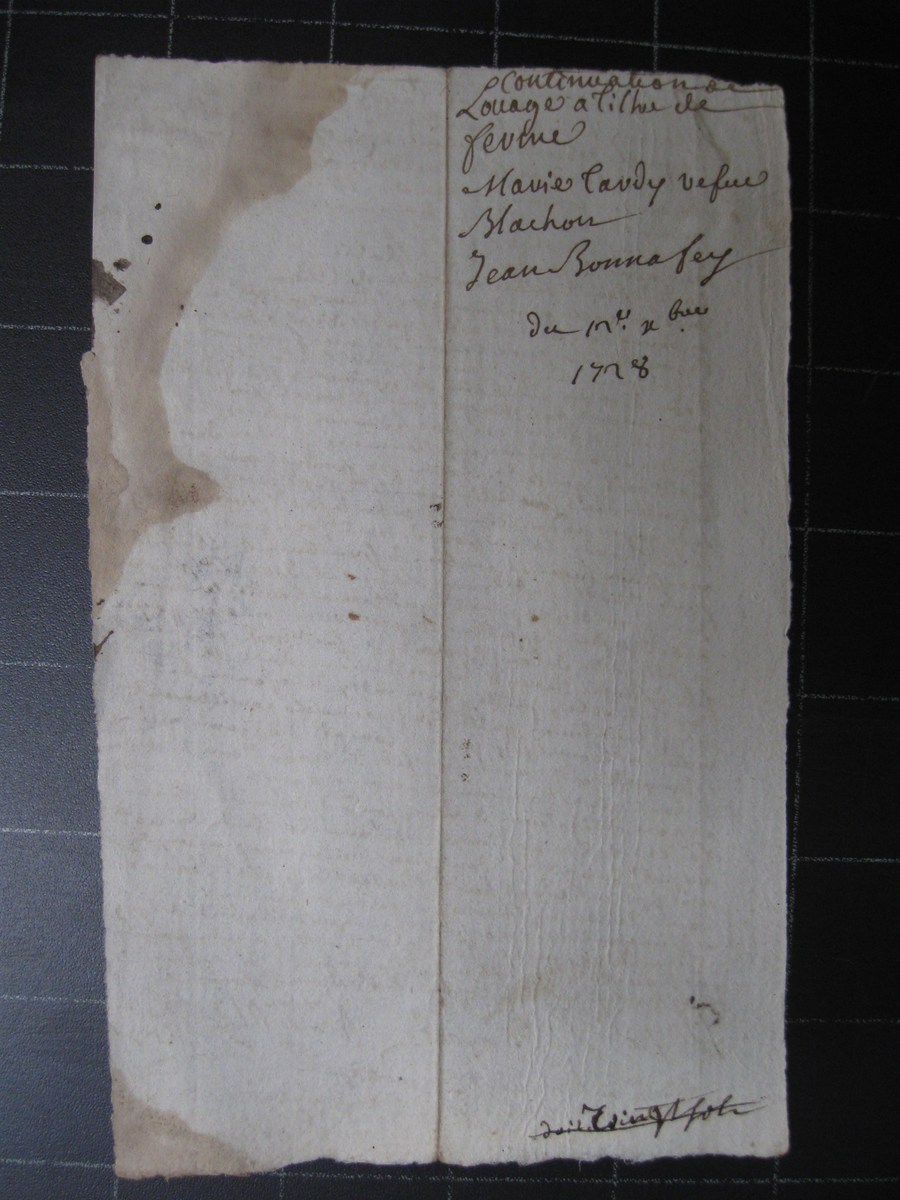 Continuation de
Louage a Tiltre de
ferme
Marie Tardy vefue
Blachon
Jean Bonnafey
du 12e xbre
1728
doit vingt sols